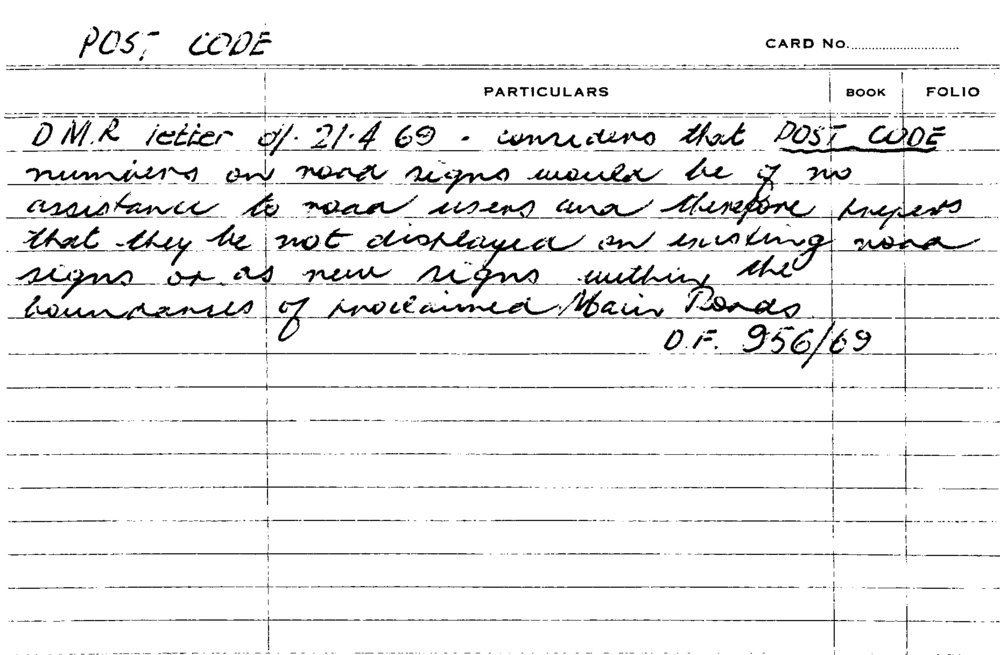 POST CODE
CARD No.
PARTICULARS BOOK FOLIO
D M.R letter of. 21.4 69 - considers that POST CODE
numbers on road signs would be of no
assistance to road users and therefore prefers
that they be not displayed on existing road
signs or as new signs within the
boundaries of proclaimed Main Roads.
D.F. 956/69